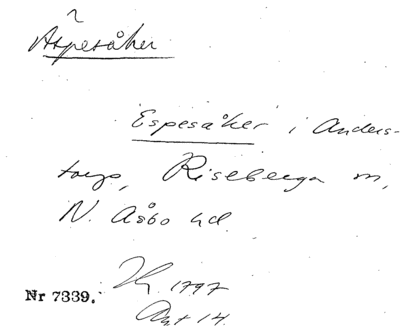 Äspesåker
Espesåker i Anders-
torp, Riseberga sn,
N. Åsbo hd.
1797
Nr 7339.
Akt 14.